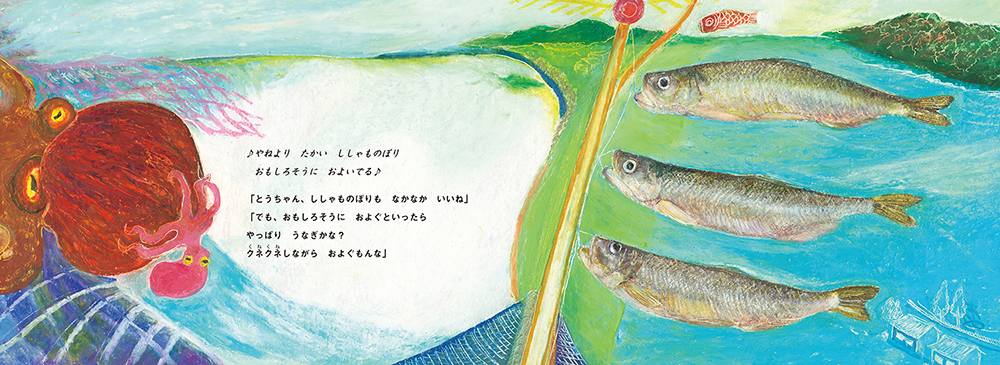 ♪やねより　たかい　ししゃものぼり
おもしろそうに　およいでる♪
「とうちゃん、ししゃものぼりも　なかなか　いいね」
「でも、おもしろそうに　およぐといったら
やっぱり　うなぎかな？
クネクネしながら　およぐもんな」